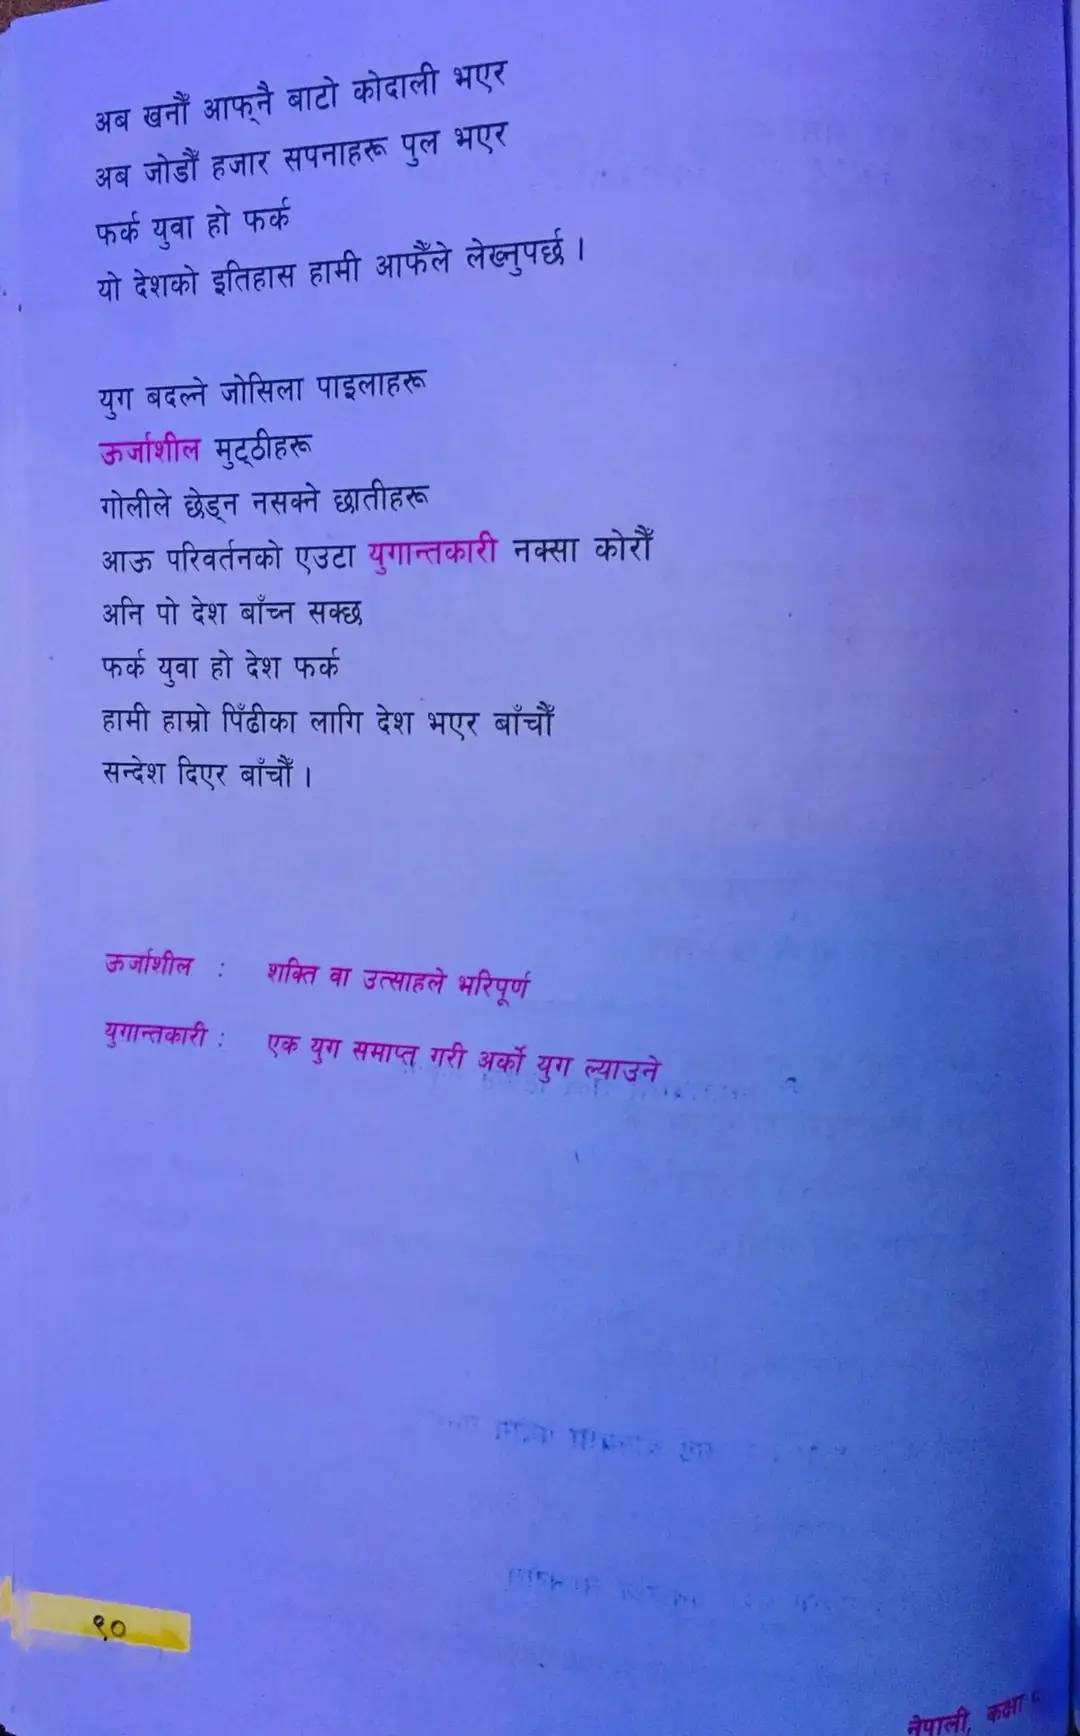 अब खनौँ आफ्नै बाटो कोदाली भएर
अब जोडौँ हजार सपनाहरू पुल भएर
फर्क युवा हो फर्क
यो देशको इतिहास हामी आफैँले लेख्नुपर्छ ।
युग बदल्ने जोसिला पाइलाहरू
ऊर्जाशील मुट्ठीहरू
गोलीले छेड्न नसक्ने छातीहरू
आऊ परिवर्तनको एउटा युगान्तकारी नक्सा कोरौँ
अनि पो देश बाँच्न सक्छ
फर्क युवा हो देश फर्क
हामी हाम्रो पिँढीका लागि देश भएर बाँचौँ
सन्देश दिएर बाँचौँ ।
ऊर्जाशील : शक्ति वा उत्साहले भरिपूर्ण
युगान्तकारी : एक युग समाप्त गरी अर्को युग ल्याउने
१०
नेपाली, कक्षा